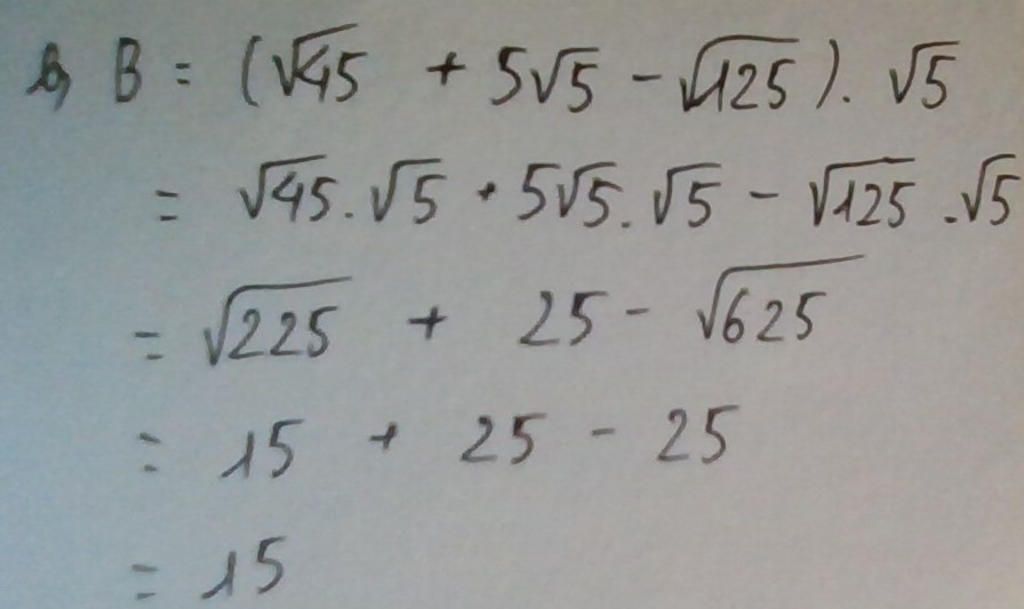 b) B = (√45 + 5√5 - √125) . √5
= √45 . √5 + 5√5 . √5 - √125 . √5
= √225 + 25 - √625
= 15 + 25 - 25
= 15